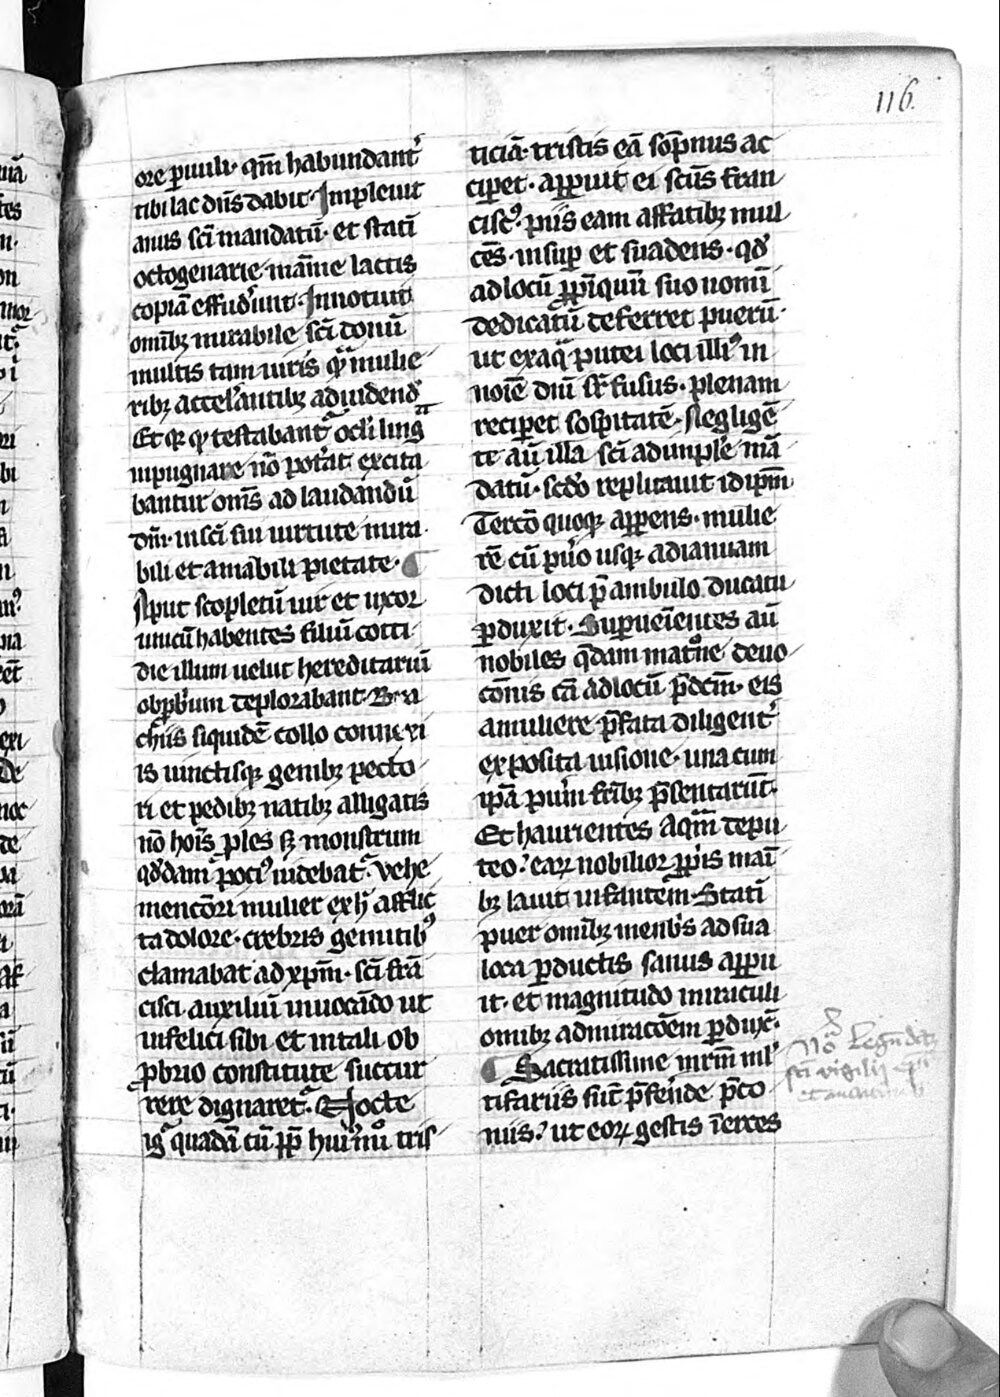 116.
ore pͥuuli· qm̄ habundant᷑
tibi lac dn̄s dabit· Impleuit
anus sc̄i mandatū· et statī
octogenarie māme lactis
copiā effud᷑unt· Innotuit
om̄ibꝫ mirabile sc̄i donū
multis tam uiris qᷓ mulie
ribꝫ accel᷑antibꝫ ad uidend᷑
Et qꝛ qͩ testabant᷑ oc̄li lingᷓ
inpugnare nō pot᷑at excita
bantur om̄s ad laudandū
dm̄· in sc̄i sui uirtute mira
bili et amabili pietate· ¶
Aput scopletū uir et uxor
unicū habentes filiū cotti
die illum uelut hereditariū
obꝓbͥum deplorabant· Bra
chijs siquidē collo connexi
is iunctisqꝫ genibꝫ pecto
ri et pedibꝫ natibꝫ alligatis
nō hoīs ꝓles sꝫ monstrum
qd᷑dam pociꝰ uidebat᷑· Vehe
menciori mulier ex h᷑ afflic
ta dolore· crebris gemitibꝰ
clamabat ad xp̄m· sc̄i frā
cisci auxiliū inuocādo ut
infelici sibi et in tali ob
ꝓbrio constitute succur
rere dignaret᷑· Nocte
igͥ quadā cū ꝓp̄ huiꝰmōi tris
ticiā· tristis eā sop̄nus ac
ciꝑet· apꝑuit ei sc̄us fran
ciscꝰ· pijs eam affatibꝫ mul
cēs· insuꝑ et suadens· qd᷑
ad locū ꝓpīquū suo nomī
dedicatū deferret puerū·
ut ex aqᷓ putei loci illiꝰ in
noīe dnī suꝑfusus· plenam
reciꝑet sospitatē· Negligē
te aū illa sc̄i adimple᷑ mā
datū· secͦdo replicauit idip̄m
Tercō quoqꝫ apꝑens· mulie
rē cū puͦo usqꝫ ad ianuam
dicti loci p̄ambulo ducatu
ꝑduxit· Suꝑueīentes aū
nobiles qᷓdam matͦne deuo
cōnis cā ad locū p̄dcm̄· eis
a muliere p̄fata diligent᷑
exposita uisione· una cum
ip̄a puͫm fribꝫ p̄sentarūt·
Et haurientes aqᷓm de pu
teo· eaꝝ nobilior ꝓpͥis maī
bꝫ lauit infantem· Statī
puer om̄ibꝫ menbͥs ad sua
loca ꝑductis sanus apꝑu
it· et magnitudo miraculi
om̄ibꝫ admiracōem ꝑduxͭ·
¶ Sacratissime mr̄m
sūt p̄fēnde p̄co
nijs· ut eoꝝ gestis
sc̄i vigilij